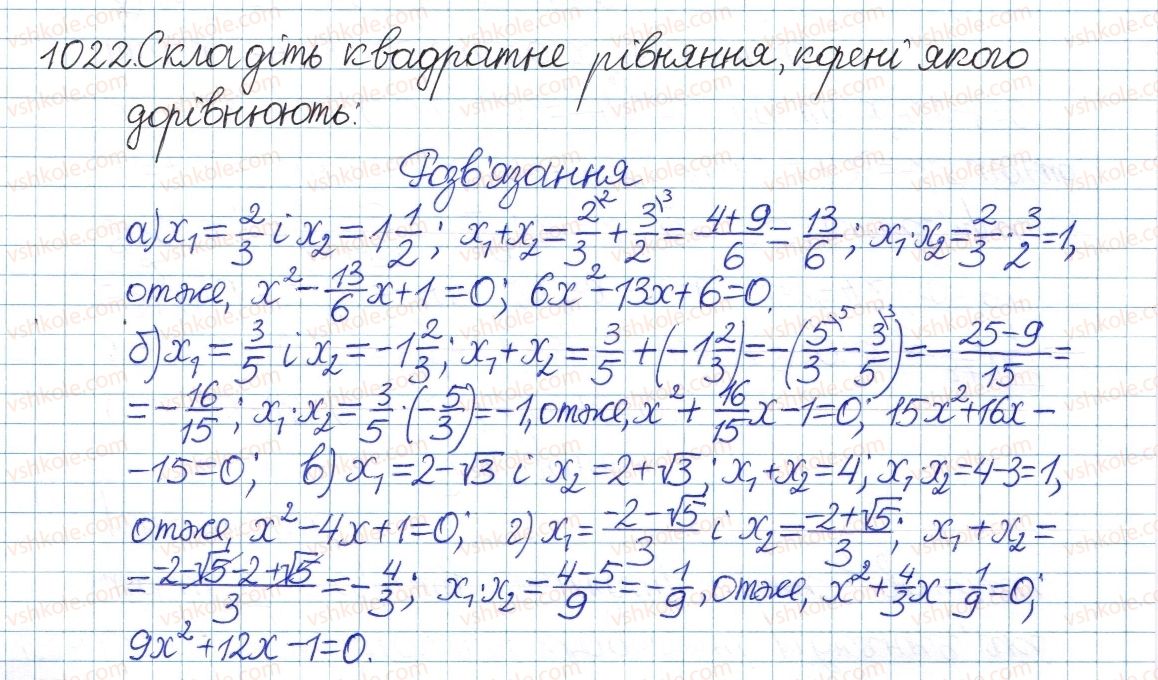 1022. Складіть квадратне рівняння, корені якого
дорівнюють:
Розв'язання
а) x₁ = 2/3 і x₂ = 1 1/2; x₁+x₂ = 2\²/3 + 3\³/2 = (4+9)/6 = 13/6; x₁·x₂ = 2/3 · 3/2 = 1,
отже, x² - 13/6 x + 1 = 0; 6x² - 13x + 6 = 0.
б) x₁ = 3/5 і x₂ = -1 2/3; x₁ + x₂ = 3/5 + (-1 2/3) = -(5\⁵/3 - 3\³/5) = - (25-9)/15 =
= - 16/15; x₁·x₂ = 3/5 · (-5/3) = -1, отже, x² + 16/15 x - 1 = 0; 15x² + 16x -
-15 = 0; в) x₁ = 2-√3 і x₂ = 2+√3; x₁+x₂ = 4; x₁·x₂ = 4-3 = 1,
отже, x² - 4x + 1 = 0; г) x₁ = (-2-√5)/3 і x₂ = (-2+√5)/3; x₁ + x₂ =
= (-2-√5-2+√5)/3 = - 4/3; x₁·x₂ = (4-5)/9 = - 1/9, Отже, x² + 4/3 x - 1/9 = 0;
9x² + 12x - 1 = 0.